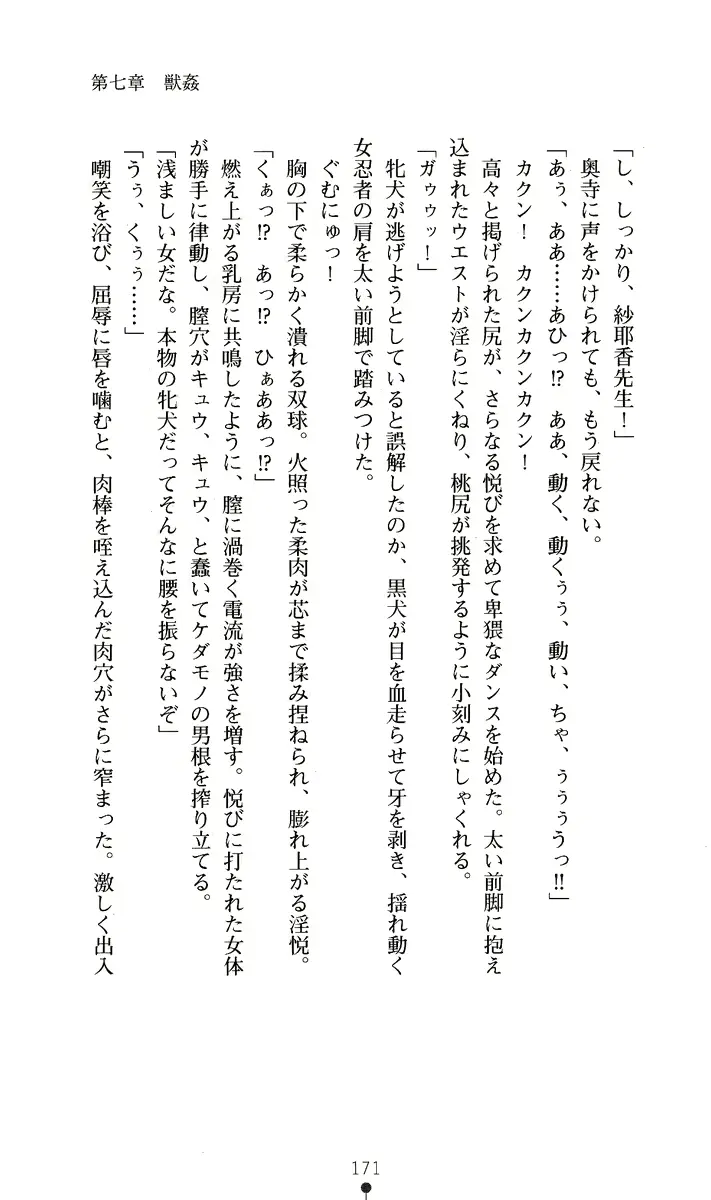 第七章　獣姦
「し、しっかり、紗耶香先生！」
奥寺に声をかけられても、もう戻れない。
「あぅ、ああ……あひっ⁉　ああ、動く、動くぅぅ、動い、ちゃ、ぅぅぅうっ‼」
カクン！　カクンカクンカクン！
高々と掲げられた尻が、さらなる悦びを求めて卑猥なダンスを始めた。太い前脚に抱え
込まれたウエストが淫らにくねり、桃尻が挑発するように小刻みにしゃくれる。
「ガゥゥッ！」
牝犬が逃げようとしていると誤解したのか、黒犬が目を血走らせて牙を剥き、揺れ動く
女忍者の肩を太い前脚で踏みつけた。
ぐむにゅっ！
胸の下で柔らかく潰れる双球。火照った柔肉が芯まで揉み捏ねられ、膨れ上がる淫悦。
「くぁっ⁉　あっ⁉　ひぁああっ⁉」
燃え上がる乳房に共鳴したように、膣に渦巻く電流が強さを増す。悦びに打たれた女体
が勝手に律動し、膣穴がキュウ、キュウ、と蠢いてケダモノの男根を搾り立てる。
「浅ましい女だな。本物の牝犬だってそんなに腰を振らないぞ」
「うぅ、くぅぅ……」
嘲笑を浴び、屈辱に唇を噛むと、肉棒を咥え込んだ肉穴がさらに窄まった。激しく出入
171